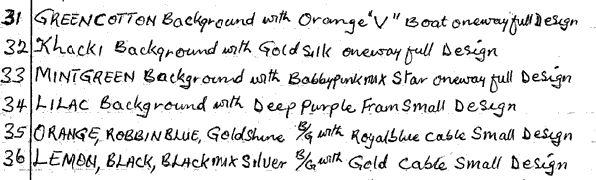 31 GREENCOTTON Background with Orange "V" Boat oneway full Design
32 Khacki Background with Gold Silk oneway full Design
33 MINTGREEN Background with Babbypink mix Star oneway full Design
34 LILAC Background with Deep Purple Fram Small Design
35 ORANGE, ROBBINBLUE, Goldshine B/G with Royalblue Cable Small Design
36 LEMON, BLACK, BLACK mix Silver B/G with Gold Cable Small Design